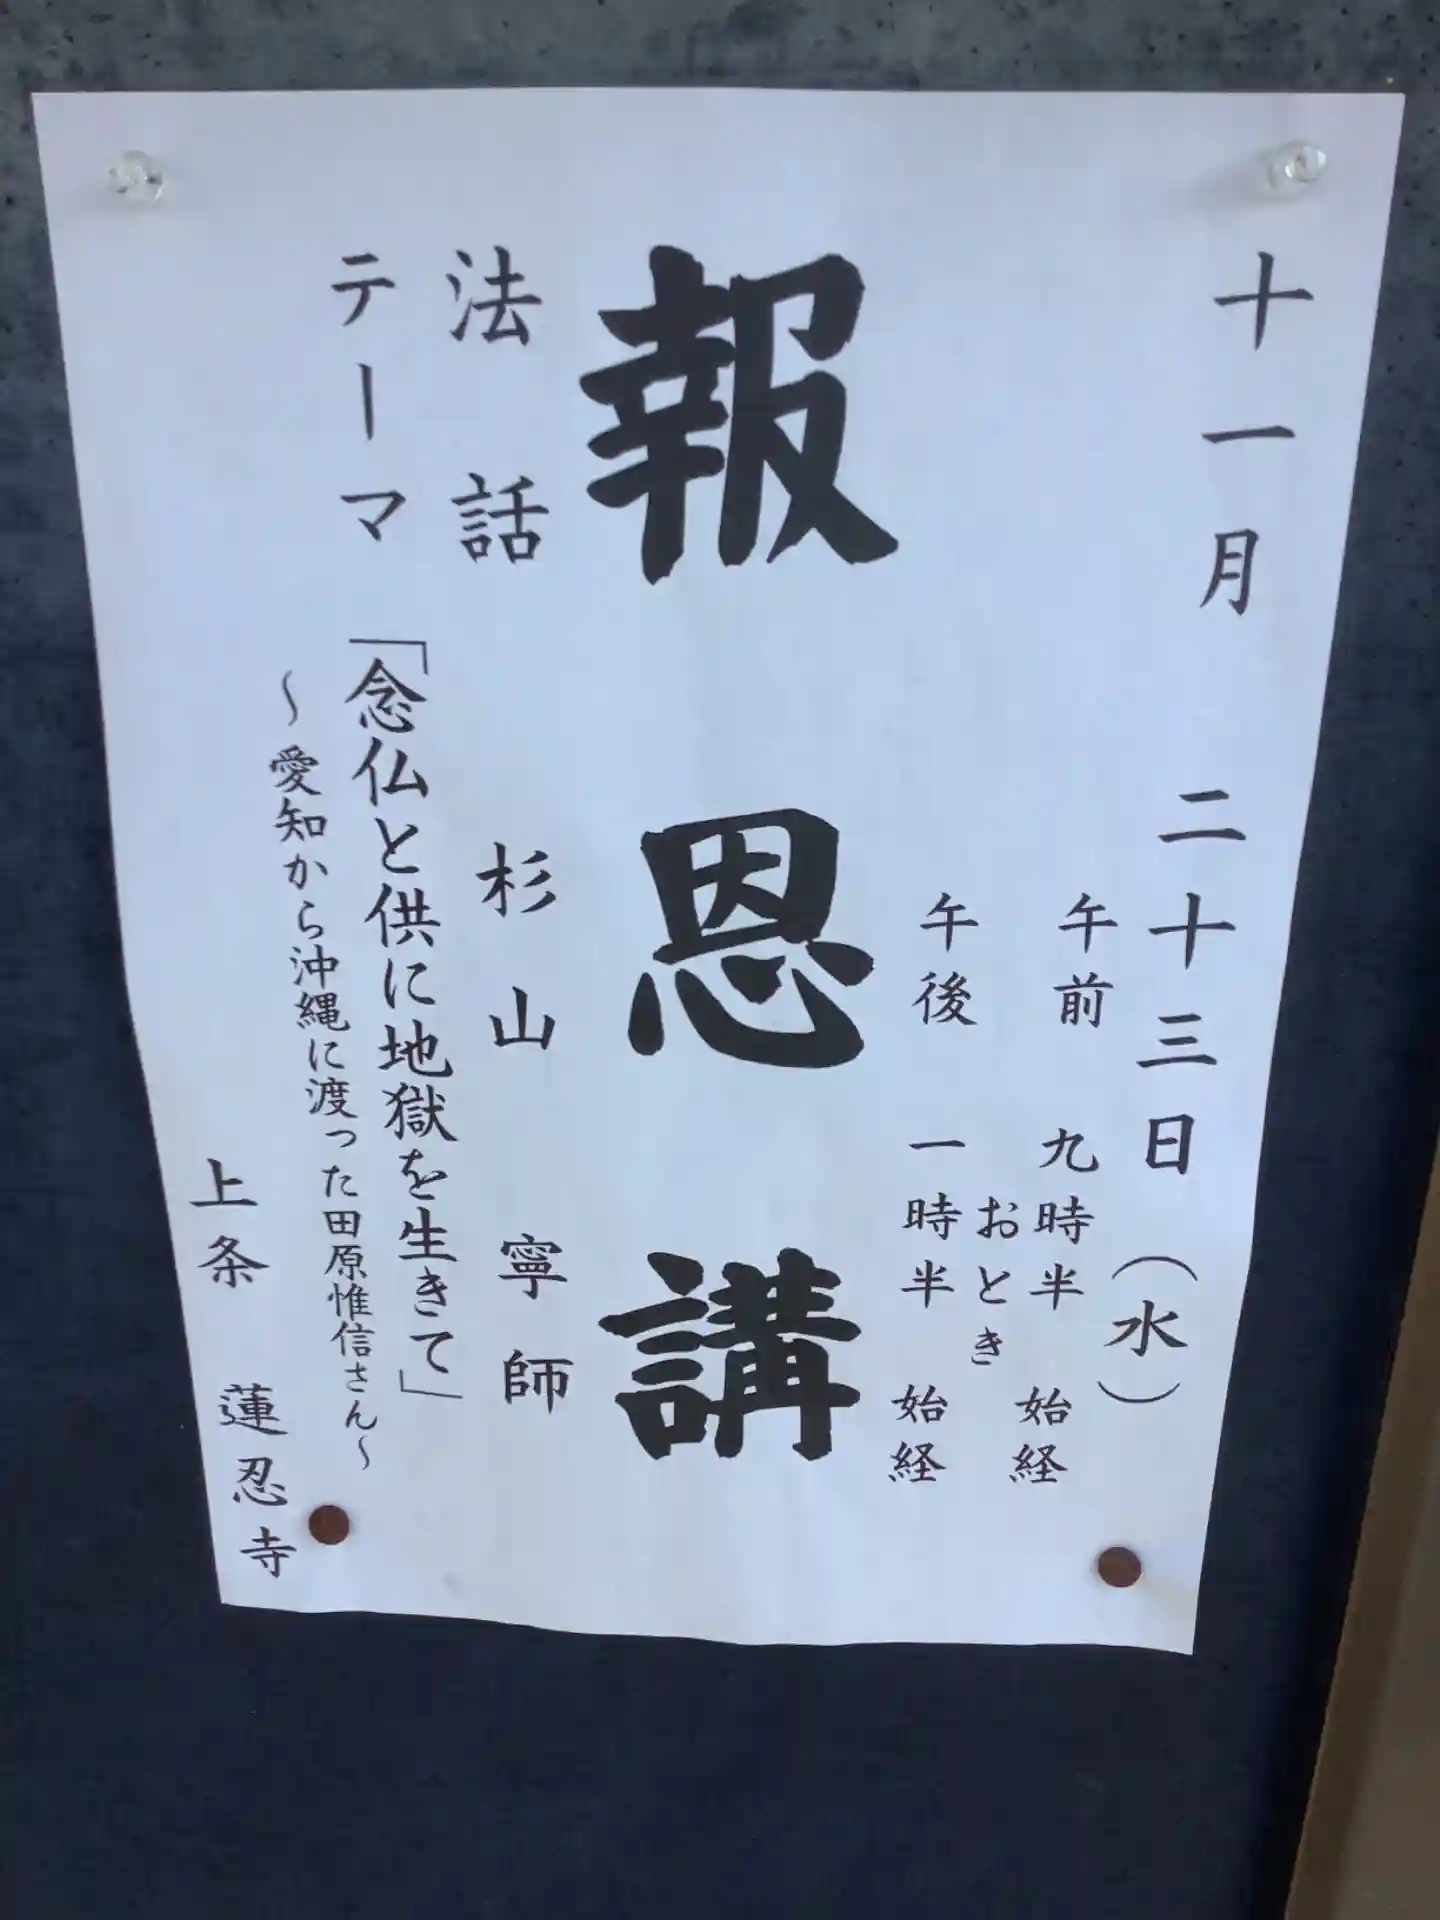 十一月 二十三日(水)
午前 九時半 始経
おとき
午後 一時半 始経
報恩講
法話 杉山寧師
テーマ「念仏と供に地獄を生きて」
～愛知から沖縄に渡った田原惟信さん～
上条 蓮忍寺